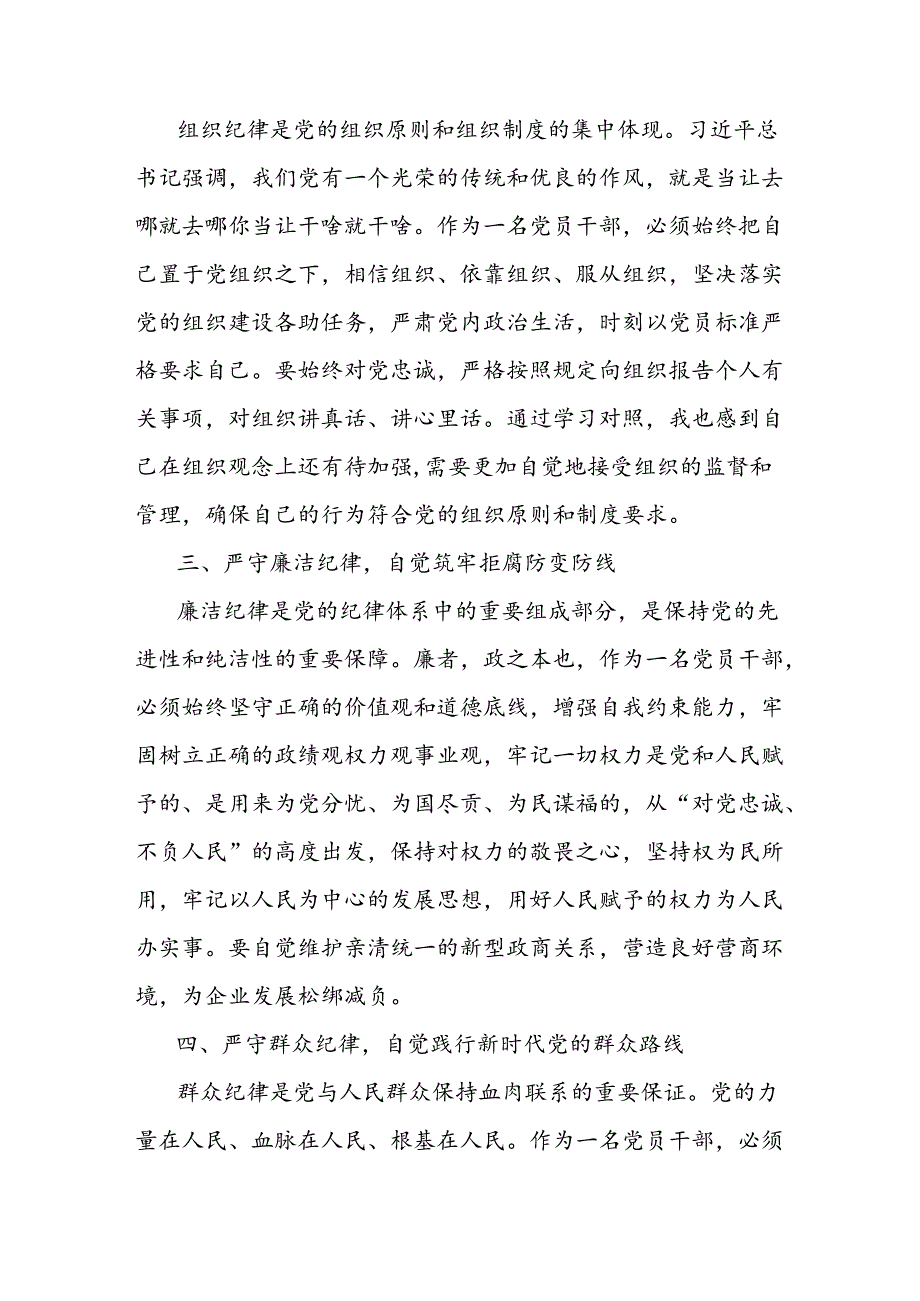 组织纪律是党的组织原则和组织制度的集中体现。习近平总
书记强调，我们党有一个光荣的传统和优良的作风，就是当让去
哪就去哪你当让干啥就干啥。作为一名党员干部，必须始终把自
己置于党组织之下，相信组织、依靠组织、服从组织，坚决落实
党的组织建设各助任务，严肃党内政治生活，时刻以党员标准严
格要求自己。要始终对党忠诚，严格按照规定向组织报告个人有
关事项，对组织讲真话、讲心里话。通过学习对照，我也感到自
己在组织观念上还有待加强,需要更加自觉地接受组织的监督和
管理，确保自己的行为符合党的组织原则和制度要求。
三、严守廉洁纪律，自觉筑牢拒腐防变防线
廉洁纪律是党的纪律体系中的重要组成部分，是保持党的先
进性和纯洁性的重要保障。廉者，政之本也，作为一名党员干部，
必须始终坚守正确的价值观和道德底线，增强自我约束能力，牢
固树立正确的政绩观权力观事业观，牢记一切权力是党和人民赋
予的、是用来为党分忧、为国尽贡、为民谋福的，从“对党忠诚、
不负人民”的高度出发，保持对权力的敬畏之心，坚持权为民所
用，牢记以人民为中心的发展思想，用好人民赋予的权力为人民
办实事。要自觉维护亲清统一的新型政商关系，营造良好营商环
境，为企业发展松绑减负。
四、严守群众纪律，自觉践行新时代党的群众路线
群众纪律是党与人民群众保持血肉联系的重要保证。党的力
量在人民、血脉在人民、根基在人民。作为一名党员干部，必须